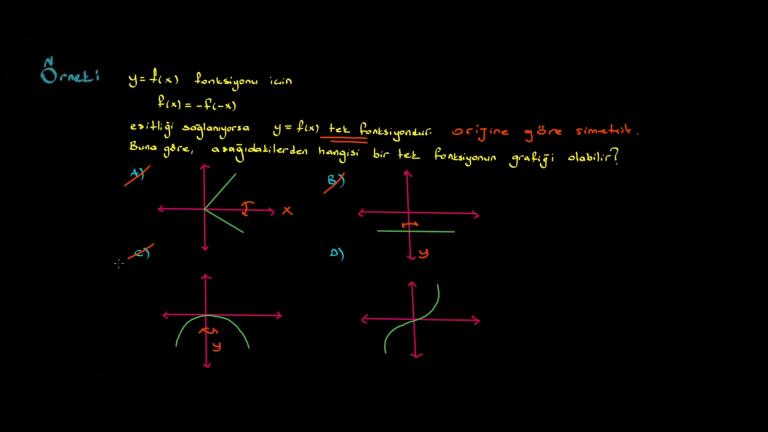 Örnek:
y = f(x) fonksiyonu için
f(x) = -f(-x)
eşitliği sağlanıyorsa y = f(x) tek fonksiyondur. orijine göre simetrik.
Buna göre, aşağıdakilerden hangisi bir tek fonksiyonun grafiği olabilir?
A) B)
x
y
C) D)
y